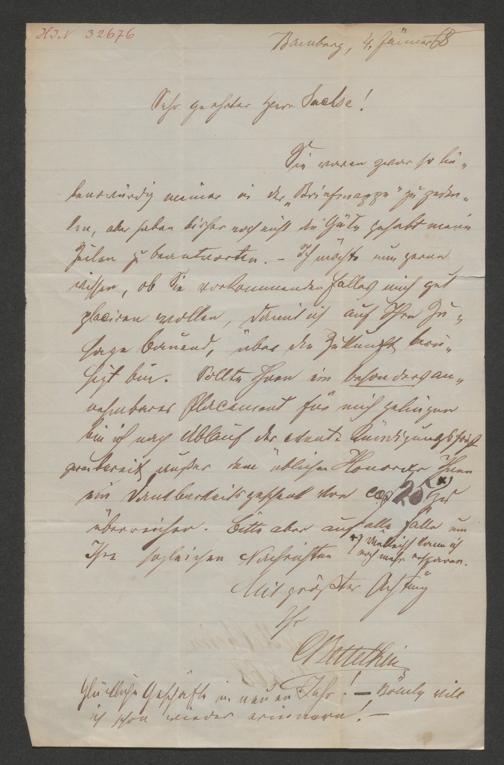 H.I.N 32676
Bamberg, 4. Jänner 68
Sehr geehrter Herr Sachse!
Sie waren zwar so lie-
benswürdig meiner in der „Briefmappe" zu geden-
ken, aber haben bisher noch nicht die Güte gehabt meine
Zeilen zu beantworten. – Ich möchte nun gerne
wissen, ob Sie vorkommenden Falles mich gut
placiren wollen, damit ich auf Ihre Zu-
sage bauend, über die Zukunft beru-
higt bin. Sollte Ihnen ein besonders an-
nehmbares Placement für mich gelingen
bin ich nach Ablauf der Kündigungsfrist
gern bereit außer dem üblichen Honorar Ihnen
ein Dankbarkeitsgeschenk von 25 x)
überreichen. Bitte aber auf alle Fälle um
Ihre sogleichen Nachrichten
x) Vielleicht kann ich
noch mehr ersparen.
Mit größter Achtung
Ihr
Glückliche Geschäfte im neuen Jahr! –
ich schon wieder erinnern! –